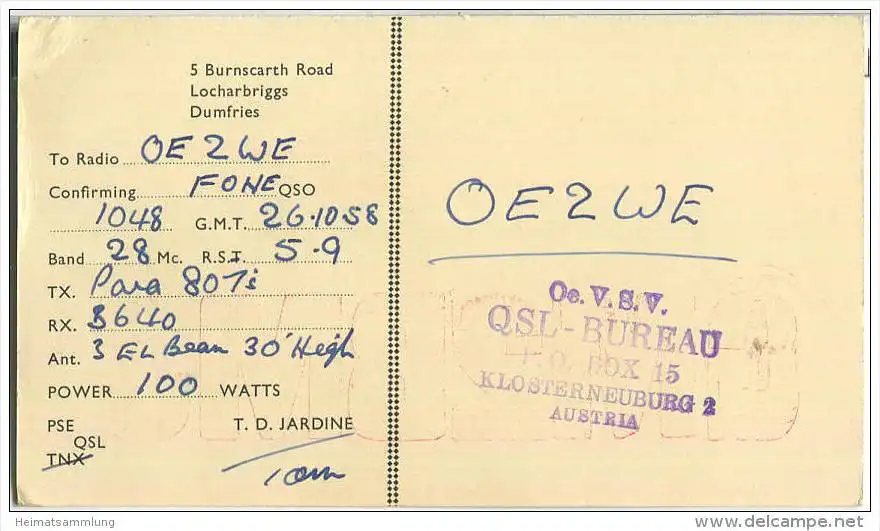 5 Burnscarth Road
Locharbriggs
Dumfries
To Radio OE2WE
Confirming FONE QSO
1048 G.M.T. 26.10.58
Band 28 Mc. R.S.T. 5-9
TX. Para 807's
RX. B640
Ant. 3 EL Beam 30' High
POWER 100 WATTS
PSE
QSL
TNX
T. D. JARDINE
Tom
OE2WE
Oe. V. S. V.
QSL-BUREAU
P.O. BOX 15
KLOSTERNEUBURG 2
AUSTRIA
Heimatsammlung
www.delcampe.net